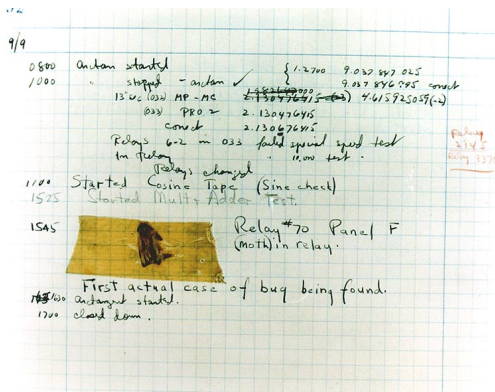 9/9
0800 Antan started
1000 " stopped - antan ✓ { 1.2700 9.037 847 025
9.037 846 995 conect
13"uc (032) MP-MC 2.130476415 (-3) 4.615925059(-2)
(033) PRO 2 2.130476415
conect 2.130676415
Relays 6-2 in 033 failed special speed test
In Relay " 10,000 test.
Relay
2145
Relay 337
Relays changed
1100 Started Cosine Tape (Sine check)
1525 Started Mult+Adder Test.
1545 Relay #70 Panel F
(moth) in relay.
First actual case of bug being found.
1630 antangent started.
1700 closed down.